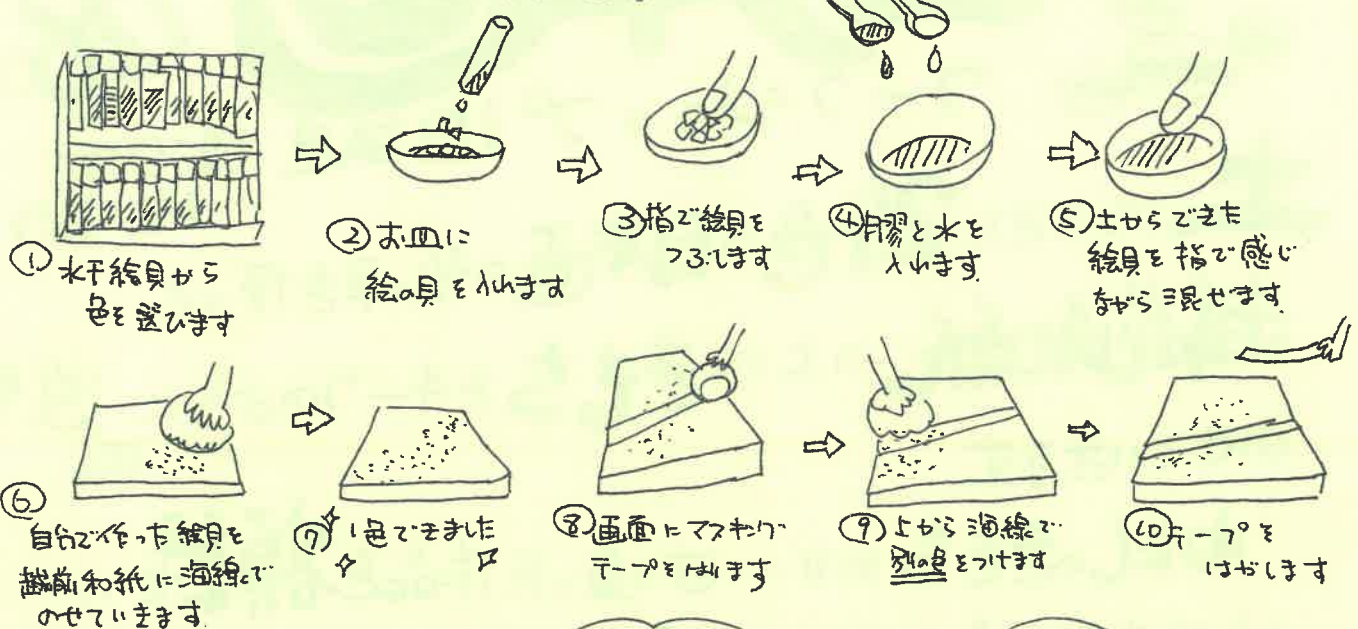 ① 水干絵具から
色を選びます
② お皿に
絵の具を入れます
③ 指で絵具を
つぶします
④ 膠と水を
入れます
⑤ 土からできた
絵具を指で感じ
ながら混ぜます
⑥
自分で作った絵具を
越前和紙に海綿で
のせていきます
⑦ 1色できました
⑧ 画面にマスキング
テープをはります
⑨ 上から海綿で
別の色をつけます
⑩ テープを
はがします